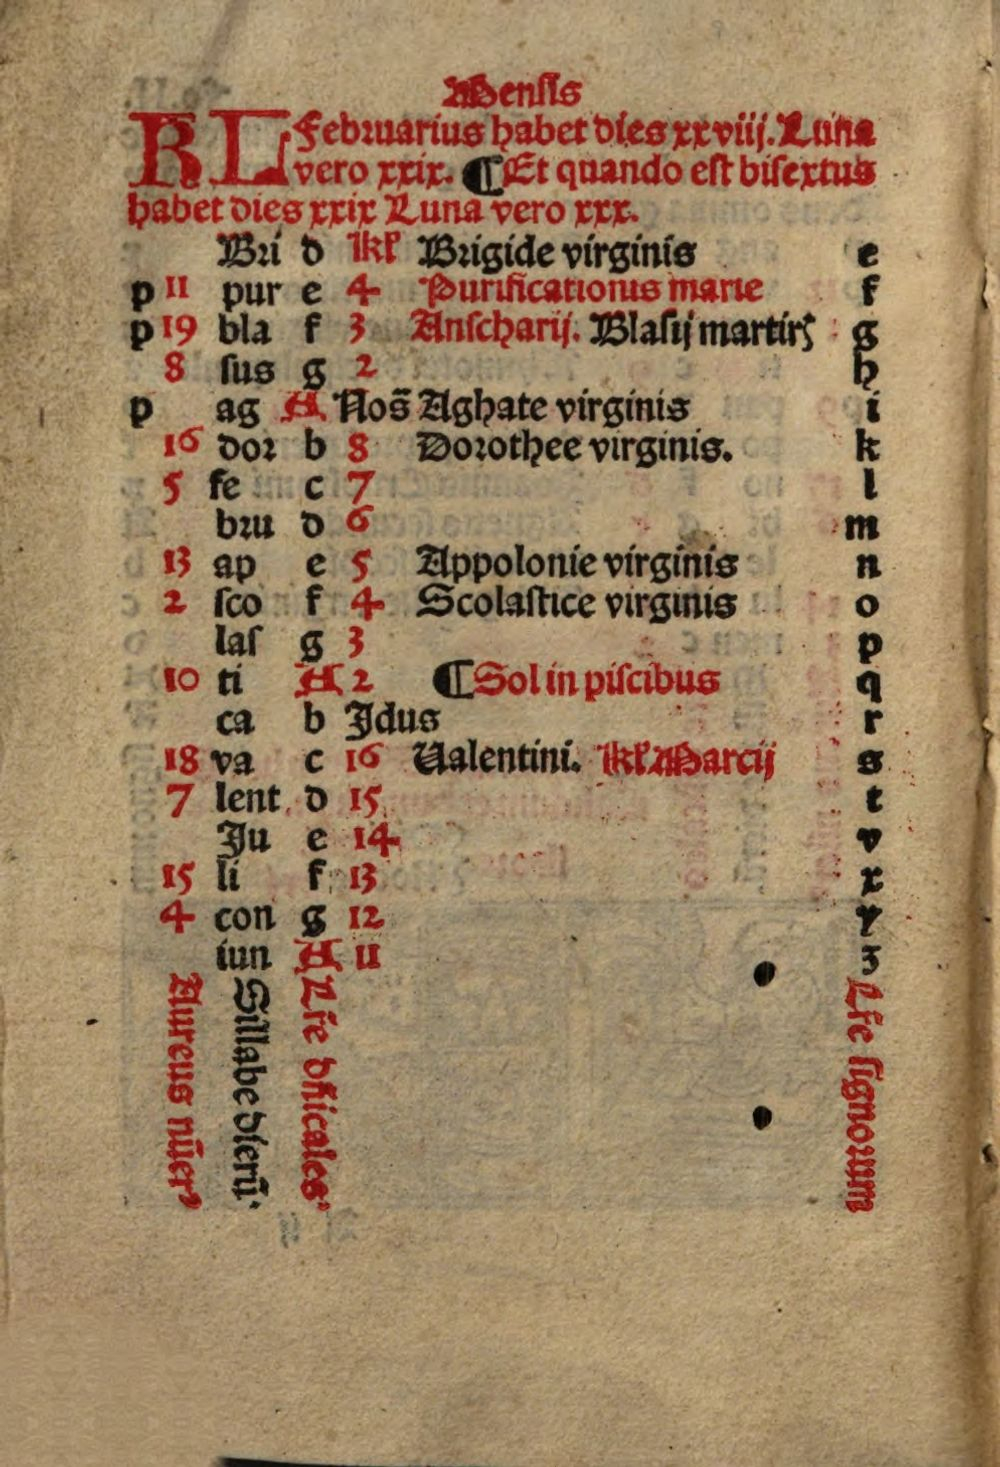 Mensis
KL Februarius habet dies xxviij. Luna
vero xxix. ¶ Et quando est bisextus
habet dies xxix Luna vero xxx.
Bri d kl Brigide virginis e
p 11 pur e 4 Purificationis marie f
p 19 bla f 3 Anscharij. Blasij martirꝭ g
8 sus g 2 h
p ag A Nos̄ Aghate virginis i
16 dor b 8 Dorothee virginis. k
5 fe c 7 l
bru d 6 m
13 ap e 5 Appolonie virginis n
2 sco f 4 Scolastice virginis o
las g 3 p
10 ti A 2 ¶ Sol in piscibus q
ca b Jdus r
18 va c 16 Valentini. kl. Marcij s
7 lent d 15 t
Ju e 14 v
15 li f 13 x
4 con g 12 y
iun A 11 z
Aureus nūer⁹
Sillabe dierū.
Lr̄e dn̄icales
Lr̄e signorum